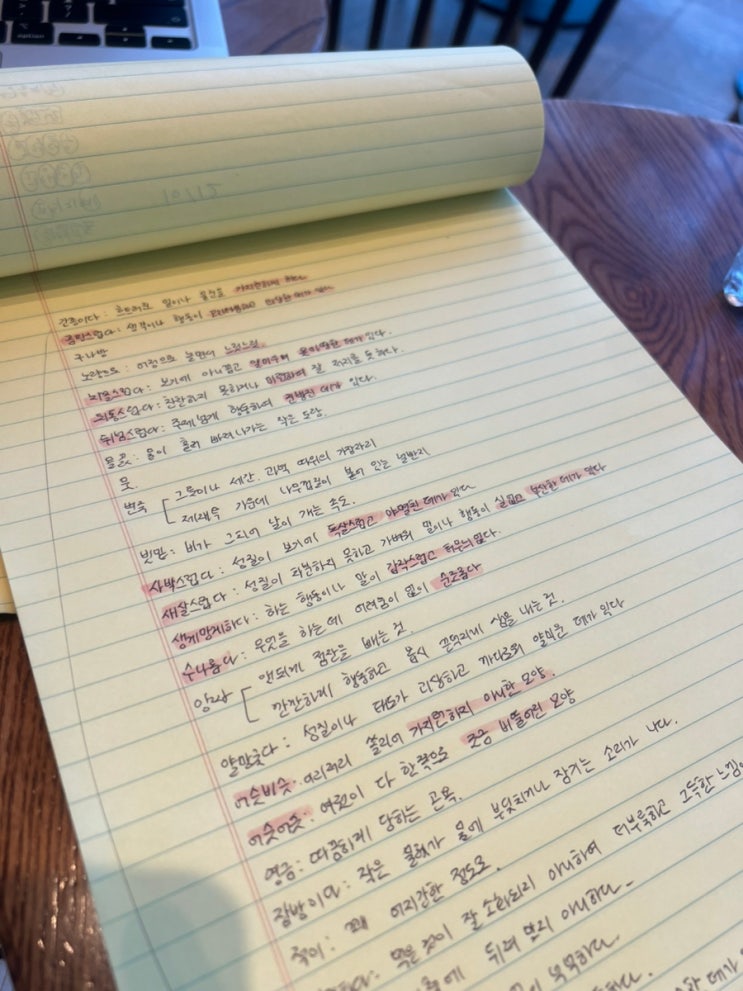 option
10/12
간종이다: 흐트러진 일이나 물건을 가지런하게 하다
스럽다: 생각이나 행동이 데가 있다
구나방
노량으로: 어정으로 놀면서 느릿느릿.
치움스럽다: 보기에 아니꼽고 얄미우며 데가 있다.
되통스럽다: 찬찬하지 못하거나 미련하여 잘 처리를 못하다.
뒤넘스럽다: 주제넘게 행동하여 건방진 데가 있다.
물꽃: 물이 흘러 빠져나가는 작은 도랑.
뭇
변죽 [ 그릇이나 세간, 과녁 따위의 가장자리
제재목 가운데 나무껍질이 붙어 있는 널빤지
빗밑: 비가 그치어 날이 개는 속도.
사박스럽다: 성질이 보기에 독살스럽고 야멸친 데가 있다
새살스럽다: 성질이 차분하지 못하고 가벼워 말이나 행동이 실없고 부산한 데가 있다
생게망게하다: 하는 행동이나 말이 갑작스럽고 터무니없다.
수나롭다: 무엇을 하는 데 어려움이 없이 순조롭다
앙짜 [ 앳되게 점잔을 빼는 것.
깐깐하게 행동하고 몹시 끈덕지게 샘을 내는 것.
얄망궂다: 성질이나 태도가 괴상하고 까다로워 얄미운 데가 있다
어슷비슷: 이리저리 쏠리어 가지런하지 아니한 모양.
어긋어긋: 여럿이 다 한쪽으로 조금 비뚤어진 모양
영금: 따끔하게 당하는 곤욕.
잠방이다: 작은 물체가 물에 부딪치거나 잠기는 소리가 나다.
적이: 꽤 어지간한 정도로.
하다: 먹은 것이 잘 소화되지 아니하여 더부룩하고 그득한 느낌이
에 뒤져 맞지 아니하다.
이 하다.
데가